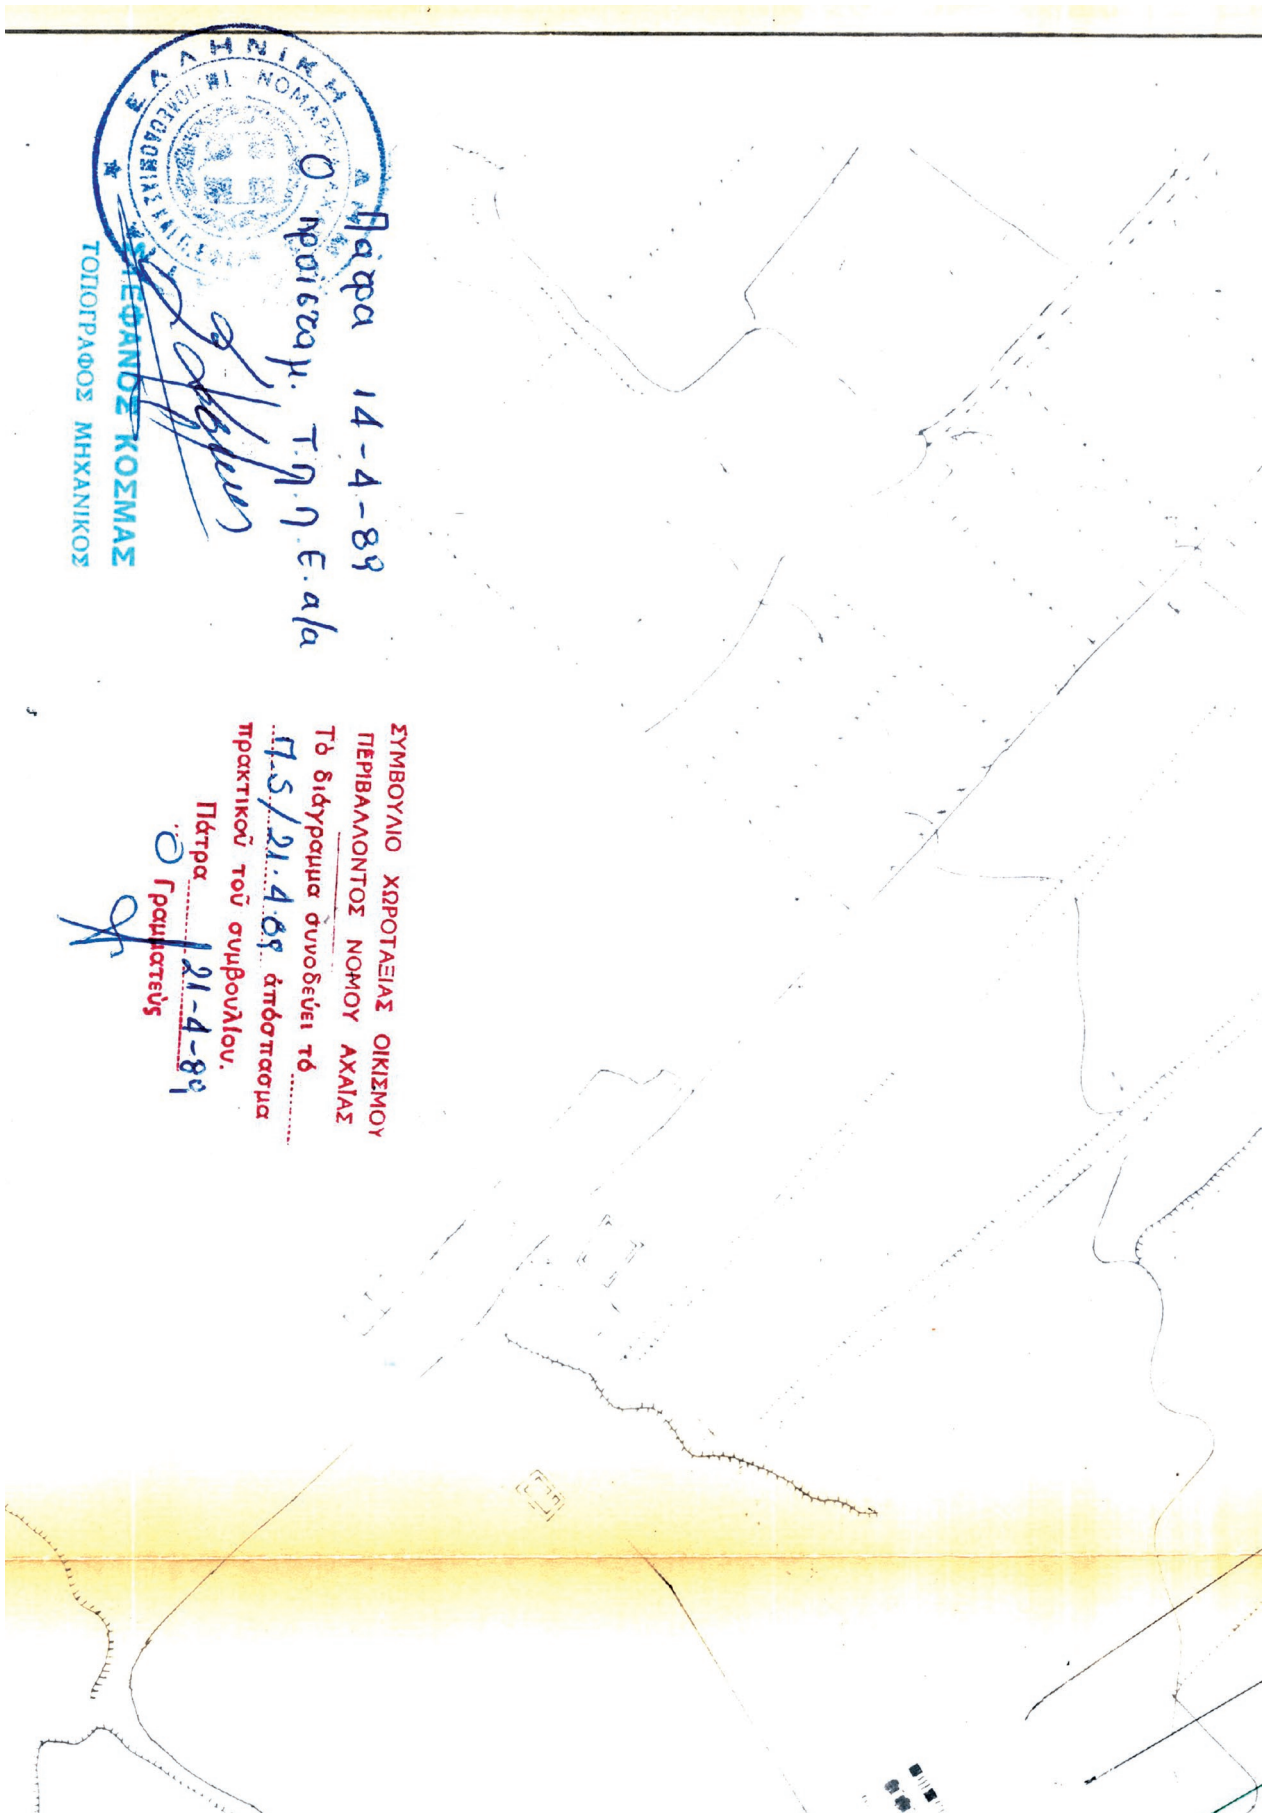 ΕΛΛΗΝΙΚΗ
ΝΟΜΑΡΧΙΑ
Πάτρα 14-4-89
Ο προϊσταμ. Τ.Π.Π.Ε. α/α
ΣΤΕΦΑΝΟΣ ΚΟΣΜΑΣ
ΤΟΠΟΓΡΑΦΟΣ ΜΗΧΑΝΙΚΟΣ
ΣΥΜΒΟΥΛΙΟ ΧΩΡΟΤΑΞΙΑΣ ΟΙΚΙΣΜΟΥ
ΠΕΡΙΒΑΛΛΟΝΤΟΣ ΝΟΜΟΥ ΑΧΑΪΑΣ
Τὸ διάγραμμα συνοδεύει τό
21.4.89 ἀπόσπασμα
πρακτικοῦ τοῦ συμβουλίου.
Πάτρα 21-4-89
Ο Γραμματεύς